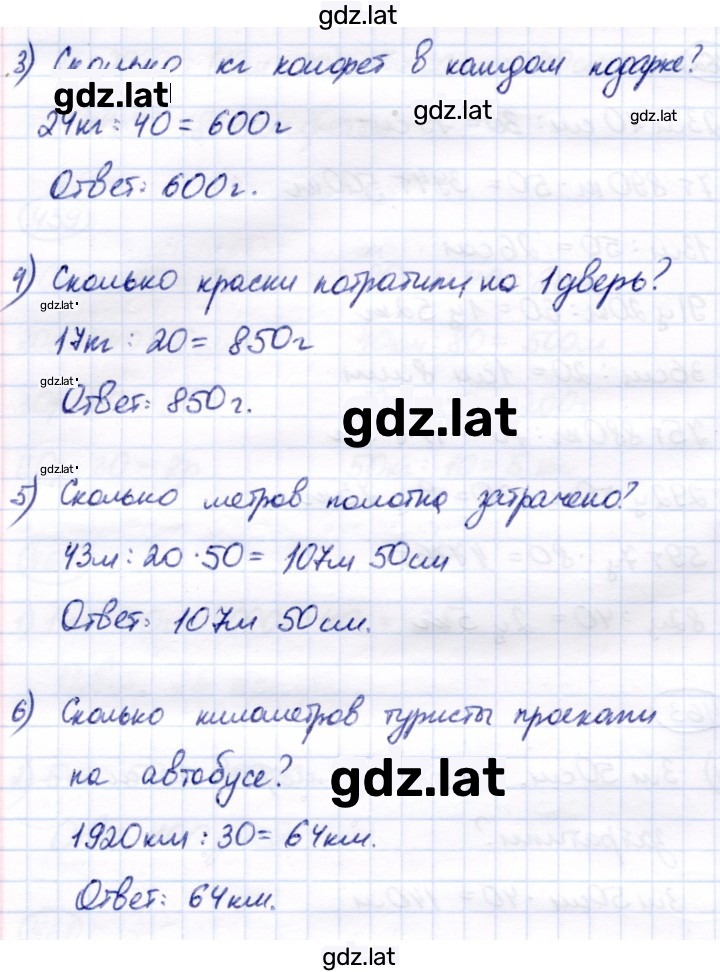 gdz.lat
3) Сколько кг конфет в каждом подарке?
gdz.lat gdz.lat gdz.lat
24кг : 40 = 600г
Ответ: 600г.
4) Сколько краски потратили на 1 дверь?
gdz.lat
17кг : 20 = 850г
gdz.lat
Ответ: 850г.
gdz.lat
gdz.lat
5) Сколько метров полотна затрачено?
43м : 20 · 50 = 107м 50см
Ответ: 107м 50см.
6) Сколько километров туристы проехали
на автобусе?
gdz.lat
1920км : 30 = 64км.
Ответ: 64км.
gdz.lat